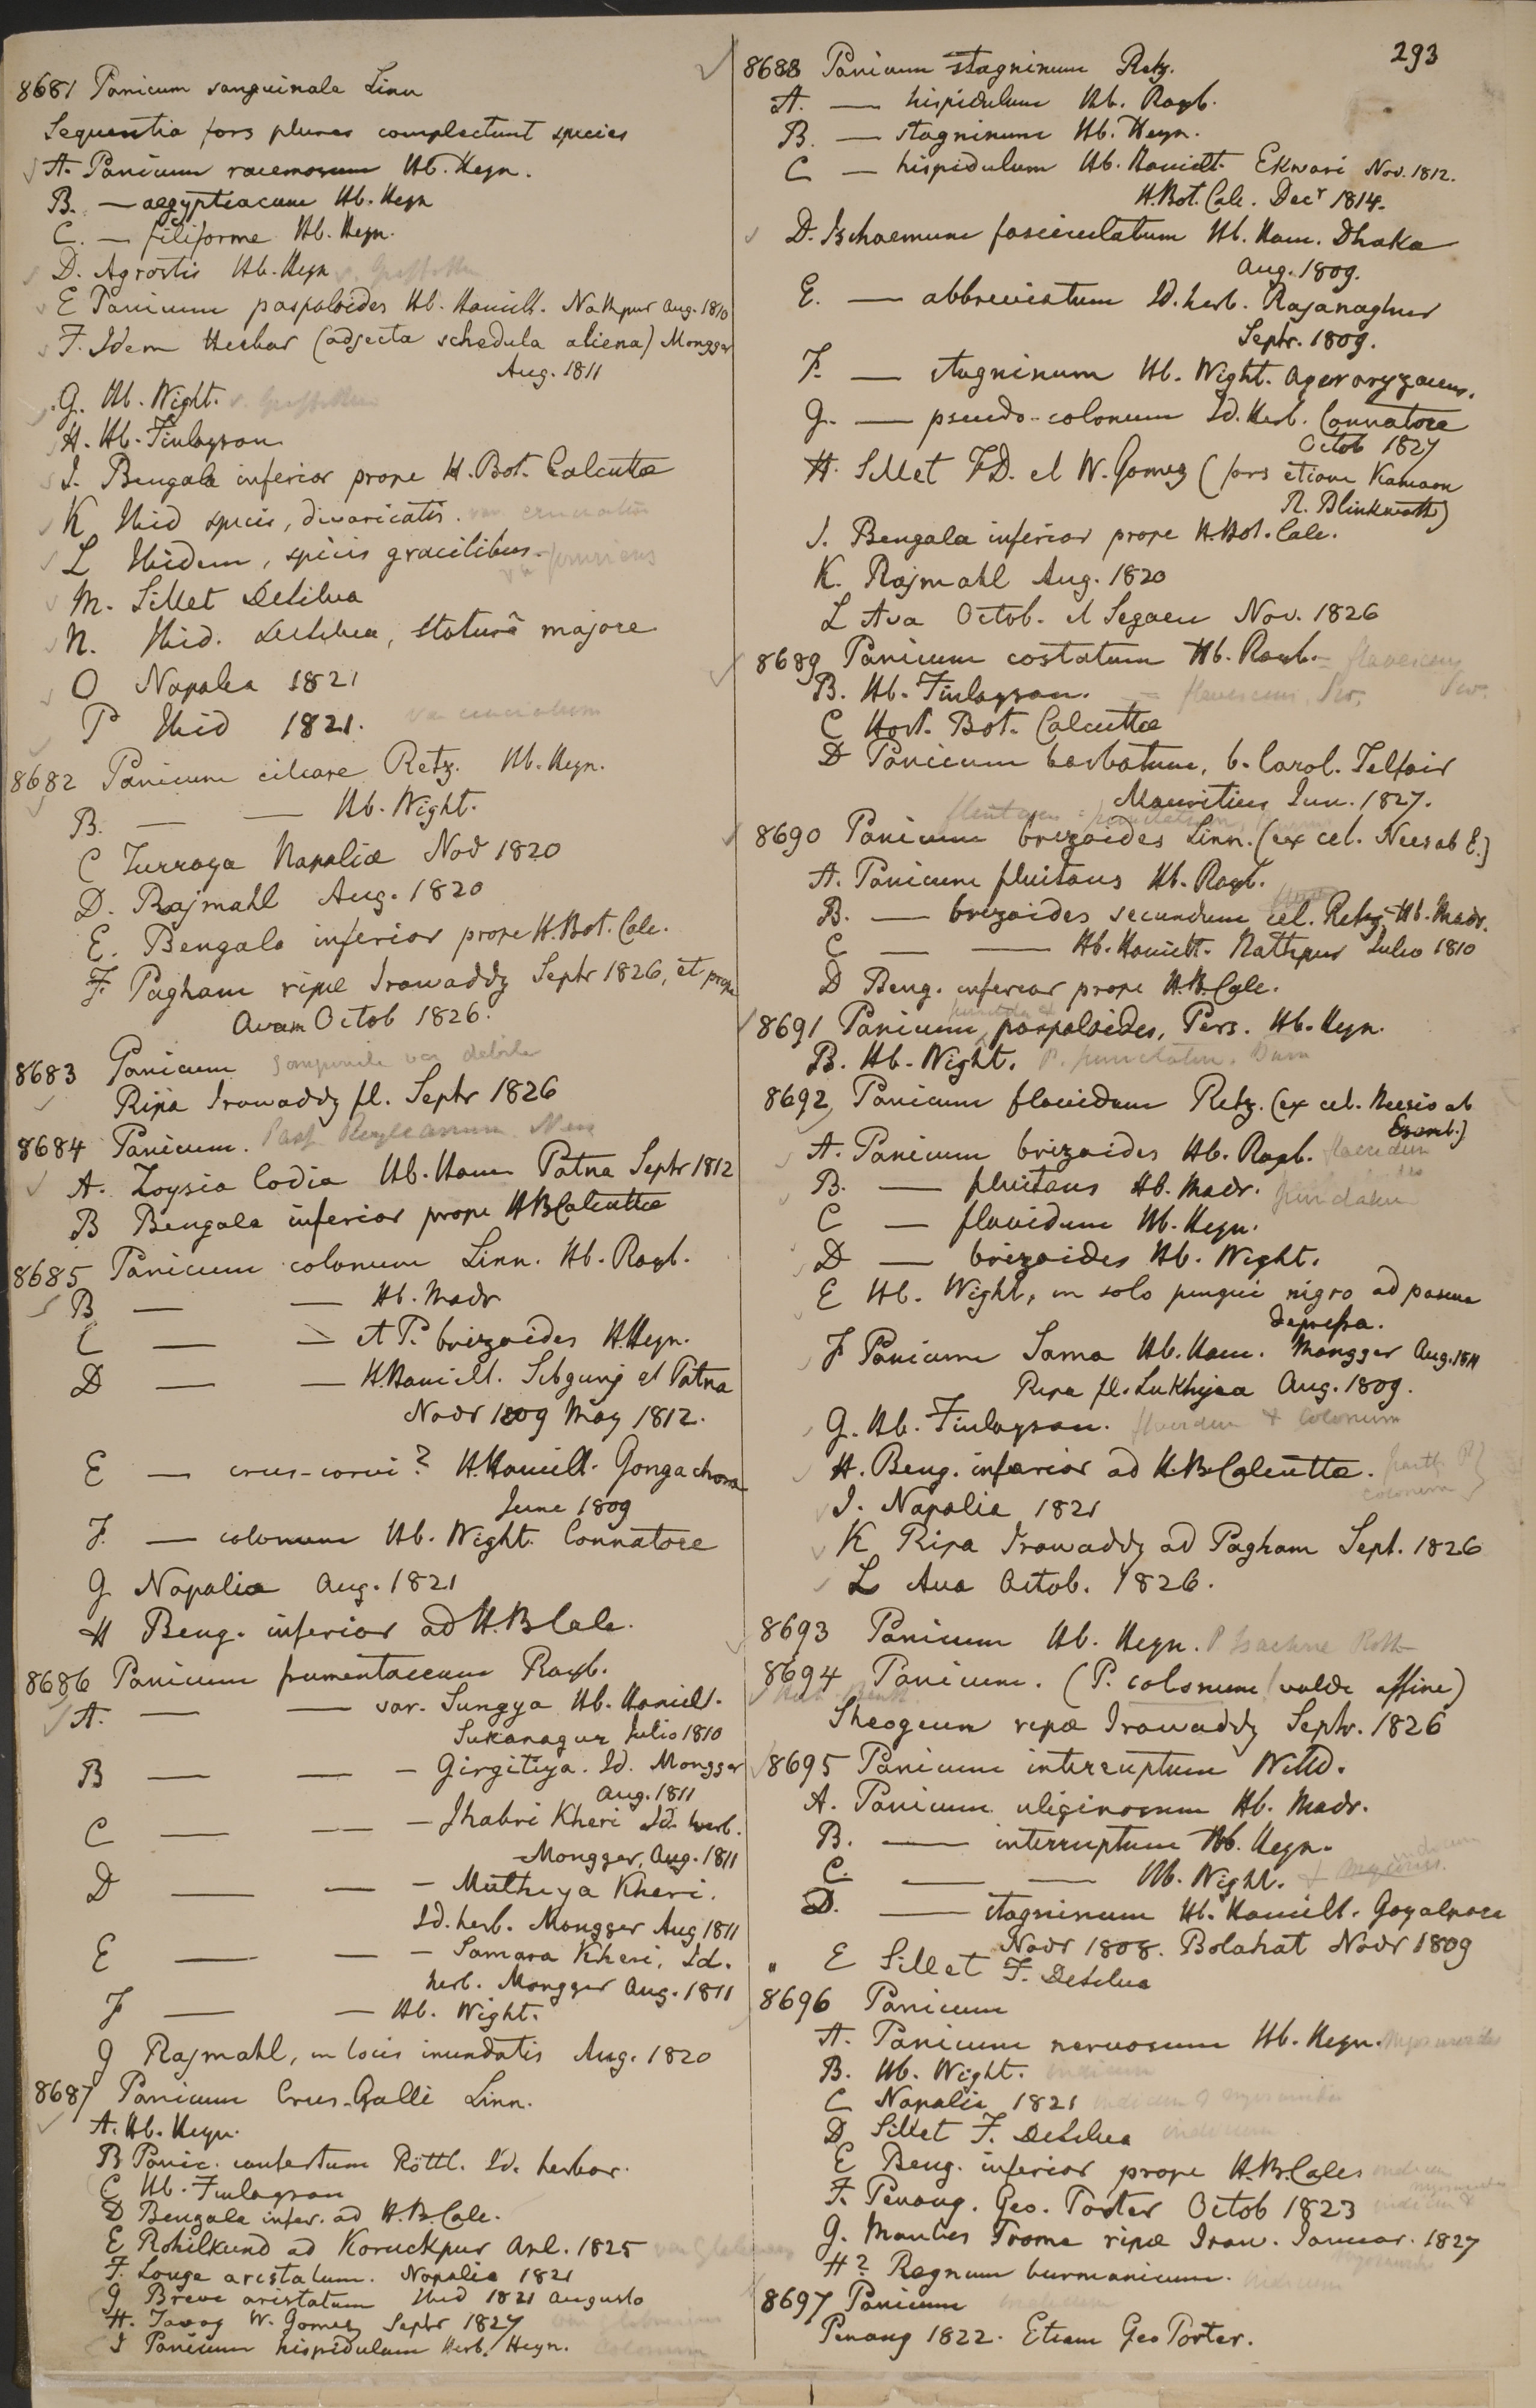 293
8681 Panicum sanguinale Linn
Sequentia fors plures complectunt species
A. Panicum racemosum Hb. Heyn.
B. — aegyptiacum Hb. Heyn
C. — filiforme Hb. Heyn.
D. Agrostis Hb. Heyn v. Griffithii
E Panicum paspaloides Hb. Hamilt. Nathpur Aug. 1810
F. Idem Herbar (adjecta schedula aliena) Mongger
Aug. 1811
G. Hb. Wight. v. Griffithii
H. Hb. Finlayson
I. Bengala inferior prope H. Bot. Calcutta
K Ibid spicis, divaricatis. var cruciatum
L Ibidem, spicis gracilibus.
M. Sillet DeSilva
N. Ibid. DeSilva, staturâ majore
O Napalia 1821
P Ibid 1821. var cruciatum
8682 Panicum ciliare Retz. Hb. Heyn.
B. — — Hb. Wight.
C Turraya Napaliæ Nov 1820
D. Rajmahl Aug. 1820
E. Bengala inferior prope H. Bot. Calc.
F Pagham ripæ Irawaddy Septr 1826, et prope
Avam Octob 1826.
8683 Panicum var debile
Ripa Irawaddy fl. Septr 1826
8684 Panicum. Pasp Royleanum Nees
A. Zoysia Codia Hb. Ham Patna Septr 1812
B Bengala inferior prope H B Calcutta
8685 Panicum colonum Linn. Hb. Roxb.
B — — Hb. Madr
C — — et P. brizoides H. Heyn.
D — — H. Hamilt. Sibgunj et Patna
Novr 1809 May 1812.
E — crus-corvi? H. Hamilt. Gongachora
June 1809
F. — colonum Hb. Wight. Connatore
G Napalia Aug. 1821
H Beng. inferior ad H. B Calc.
8686 Panicum frumentaceum Roxb.
A. — — var. Sungya Hb. Hamilt.
Sukanagur Julio 1810
B — — — Girgitiya. Id. Mongger
Aug. 1811
C — — — Jhabri Kheri Id. herb.
Mongger, Aug. 1811
D — — — Muthiya Kheri.
Id. herb. Mongger Aug 1811
E — — — Samara Kheri, Id.
herb. Mongger Aug. 1811
F — — Hb. Wight.
G Rajmahl, in locis inundatis Aug. 1820
8687 Panicum Crus-Galli Linn.
A. Hb. Heyn.
B Panic. confertum Röttl. Id. herbar.
C Hb. Finlayson
D Bengala infer. ad H. B. Calc.
E Rohilkund ad Koruckpur Apl. 1825
F. Longe aristatum. Napalia 1821
G Breve aristatum Ibid 1821 Augusto
H. Tavoy W. Gomez Septr 1827
I Panicum hispidulum Herb. Heyn. Colonum
8688 Panicum stagninum Retz.
A. — hispidulum Hb. Roxb.
B. — stagninum Hb. Heyn.
C — hispidulum Hb. Hamilt. Ekwari Nov. 1812.
H. Bot. Calc. Decr 1814.
D. Ischaemum fasciculatum Hb. Ham. Dhaka
Aug. 1809.
E. — abbreviatum Id. herb. Rajanaghur
Septr. 1809.
F. — stagninum Hb. Wight. Ager oryzaceus.
G. — pseudo-colonum Id. Herb. Connatore
Octob 1827
H. Sillet F D. et W. Gomez (fors etiam Kamaon
R. Blinkworth)
I. Bengala inferior prope H. Bot. Calc.
K. Rajmahl Aug. 1820
L Ava Octob. et Segaen Nov. 1826
8689 Panicum costatum Hb. Roxb. = flavescens Sw.
B. Hb. Finlayson. — = flavescens, Sw.
C Hort. Bot. Calcutta
D Panicum barbatum, b. Carol. Telfair
Mauritius Jun. 1827.
8690 Panicum brizoides Linn. (ex cel. Nees ab E.)
A. Panicum fluitans Hb. Roxb.
B. — brizoides secundum cel. Retz. Hb. Madr.
C — — Hb. Hamilt. Nathpur Julio 1810
D Beng. inferior prope H. B. Calc.
8691 Panicum paspaloides, Pers. Hb. Heyn.
B. Hb. Wight. P. punctatum. Burm
8692 Panicum flavidum Retz. (ex cel. Neesio ab
Esenb.)
A. Panicum brizoides Hb. Roxb. flaccidum
B. — fluitans Hb. Madr.
C — flavidum Hb. Heyn.
D — brizoides Hb. Wight.
E Hb. Wight, in solo pingui nigro ad pascua
depressa.
F Panicum Sama Hb. Ham. Mongger Aug. 1811
Ripa fl. Lukhyaa Aug. 1809.
G. Hb. Finlayson. flavidum & Colonum
H. Beng. inferior ad H. B. Calcutta. partly P. colonum
I. Napalia 1821
K Ripa Irawaddy ad Pagham Sept. 1826
L Ava Octob. 1826.
8693 Panicum Hb. Heyn. P Isachne Roth
8694 Panicum. (P. colonum! valde affine)
Sheogeun ripæ Irawaddy Septr. 1826
8695 Panicum interruptum Willd.
A. Panicum uliginosum Hb. Madr.
B. — interruptum Hb. Heyn.
C. — — Hb. Wight.
D. — stagninum Hb. Hamilt. Goyalpara
Novr 1808. Bolahat Novr 1809
E Sillet F. DeSilva
8696 Panicum
A. Panicum nervosum Hb. Heyn.
B. Hb. Wight. indicum
C Napalia 1821 indicum & myosuroides
D Sillet F. DeSilva indicum
E Beng. inferior prope H. B. Calc indicum
F. Penang. Geo. Porter Octob 1823 indicum &
G. Montes Prome ripæ Iraw. Januar. 1827
H? Regnum burmanicum. indicum
8697 Panicum indicum
Penang 1822. Etiam Geo Porter.